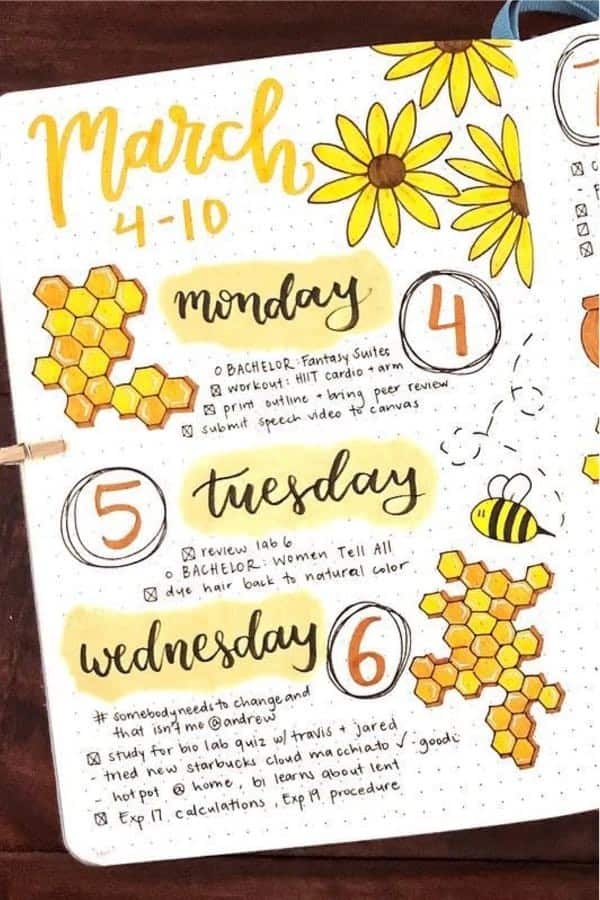 March
4-10
monday
4
o BACHELOR: Fantasy Suites
☒ workout: HIIT cardio + arm
☒ print outline + bring peer review
☒ submit speech video to canvas
5
tuesday
☒ review lab 6
o BACHELOR: Women Tell All
☒ dye hair back to natural color
wednesday
6
# somebodyneedstochangeand
that isn't me @andrew
☒ study for bio lab quiz w/ travis + jared
- tried new starbucks cloud macchiato ✓ - good :)
- hotpot @ home, bi learns about lent
☒ Exp 17 calculations, Exp 19 procedure